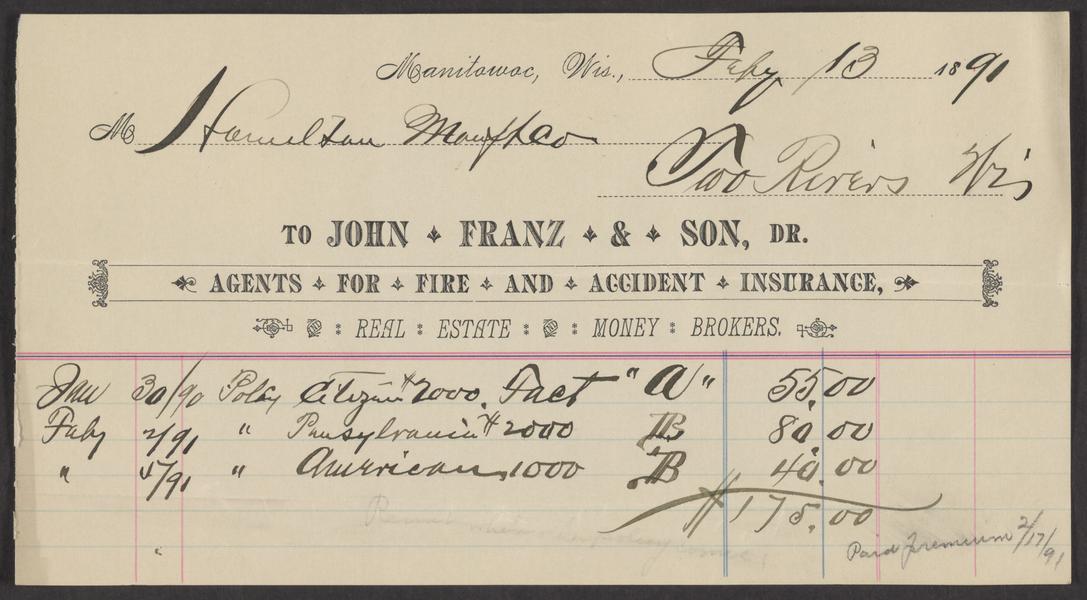 Manitowoc, Wis., Feby 13 1891
M Hamilton Manf Co
Two Rivers Wis
TO JOHN FRANZ & SON, DR.
AGENTS FOR FIRE AND ACCIDENT INSURANCE,
REAL ESTATE : MONEY : BROKERS.
Jan 30/90 Policy Citizens $2000. Fact "A" 55.00
Feby 2/91 " Pensylvania $2000 B 80.00
" 5/91 " American 1000 B 40.00
$175.00
Paid Premium 2/17/91